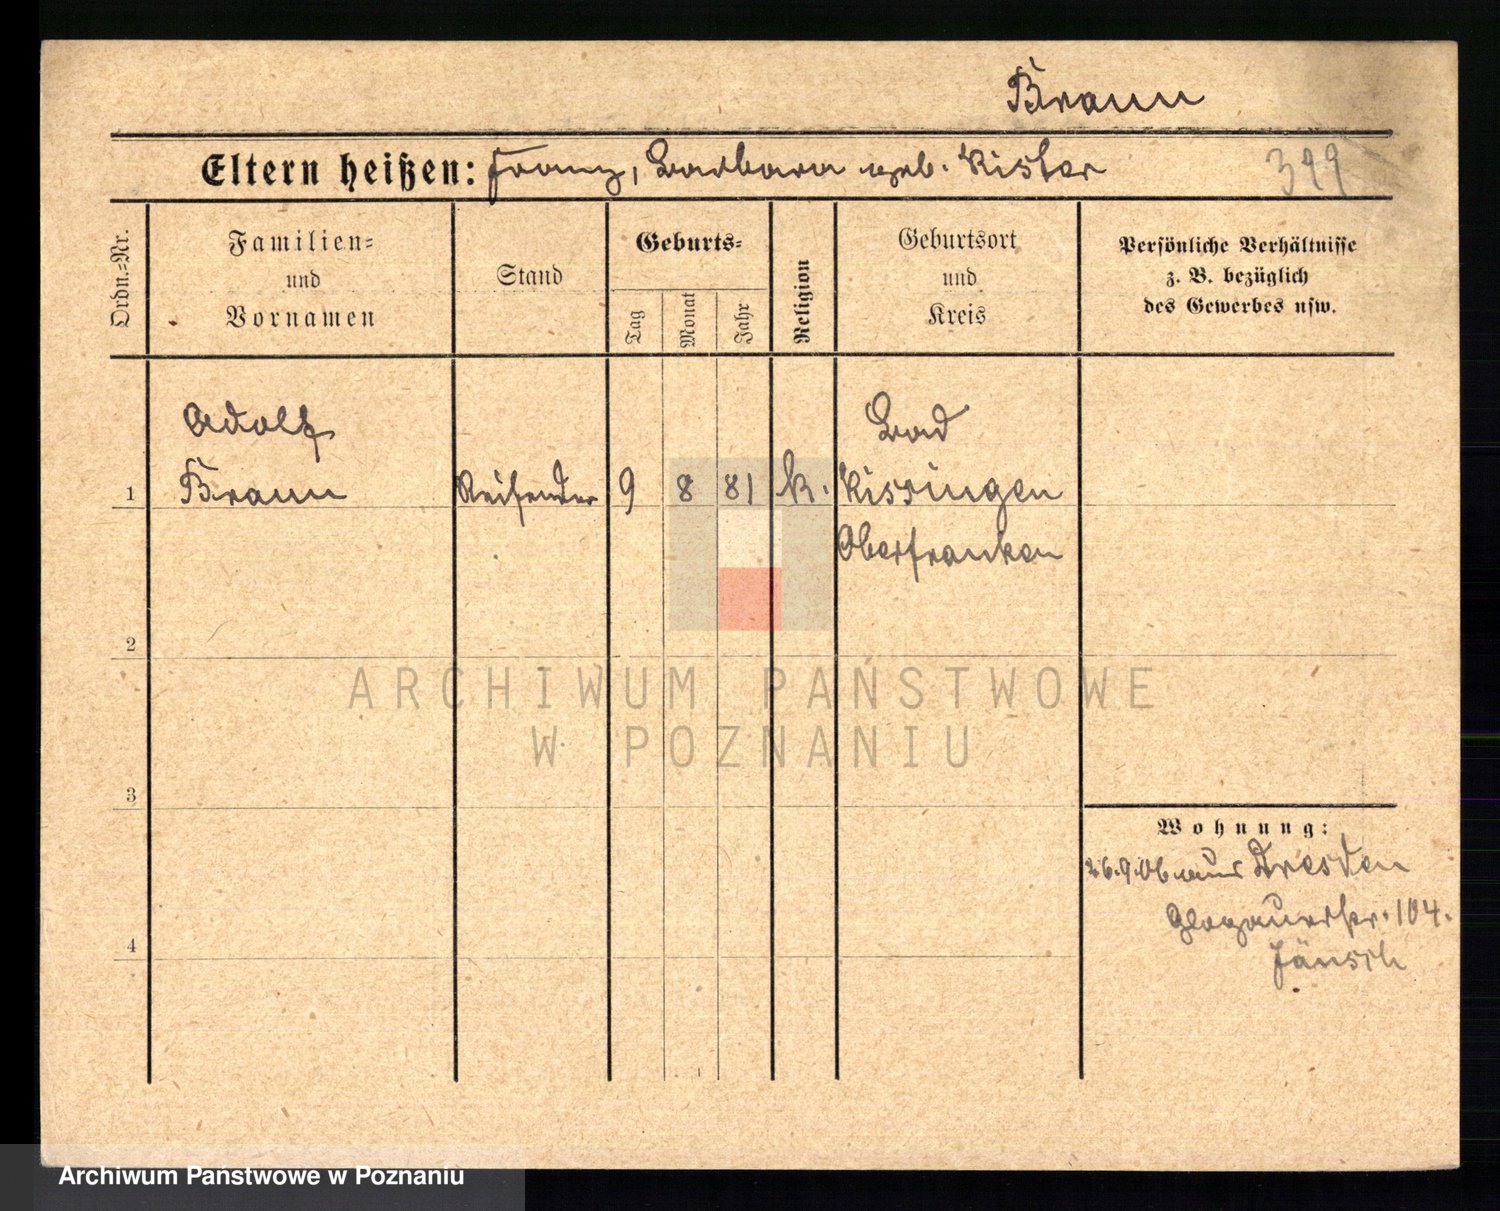 Braun
Eltern heißen: Franz, Barbara geb. Kister
399
Ordn.-Nr.
Familien-
und
Vornamen
Stand
Geburts-
Tag
Monat
Jahr
Religion
Geburtsort
und
Kreis
Persönliche Verhältnisse
z. B. bezüglich
des Gewerbes usw.
Adolf
Bad
1 Braun Reisender 9 8 81 k. Kissingen
Oberfranken
2
ARCHIWUM PAŃSTWOWE
W POZNANIU
3
Wohnung:
26.9.06 aus Dresden
Glogauerstr. 104.
Jänsch
4
Archiwum Państwowe w Poznaniu